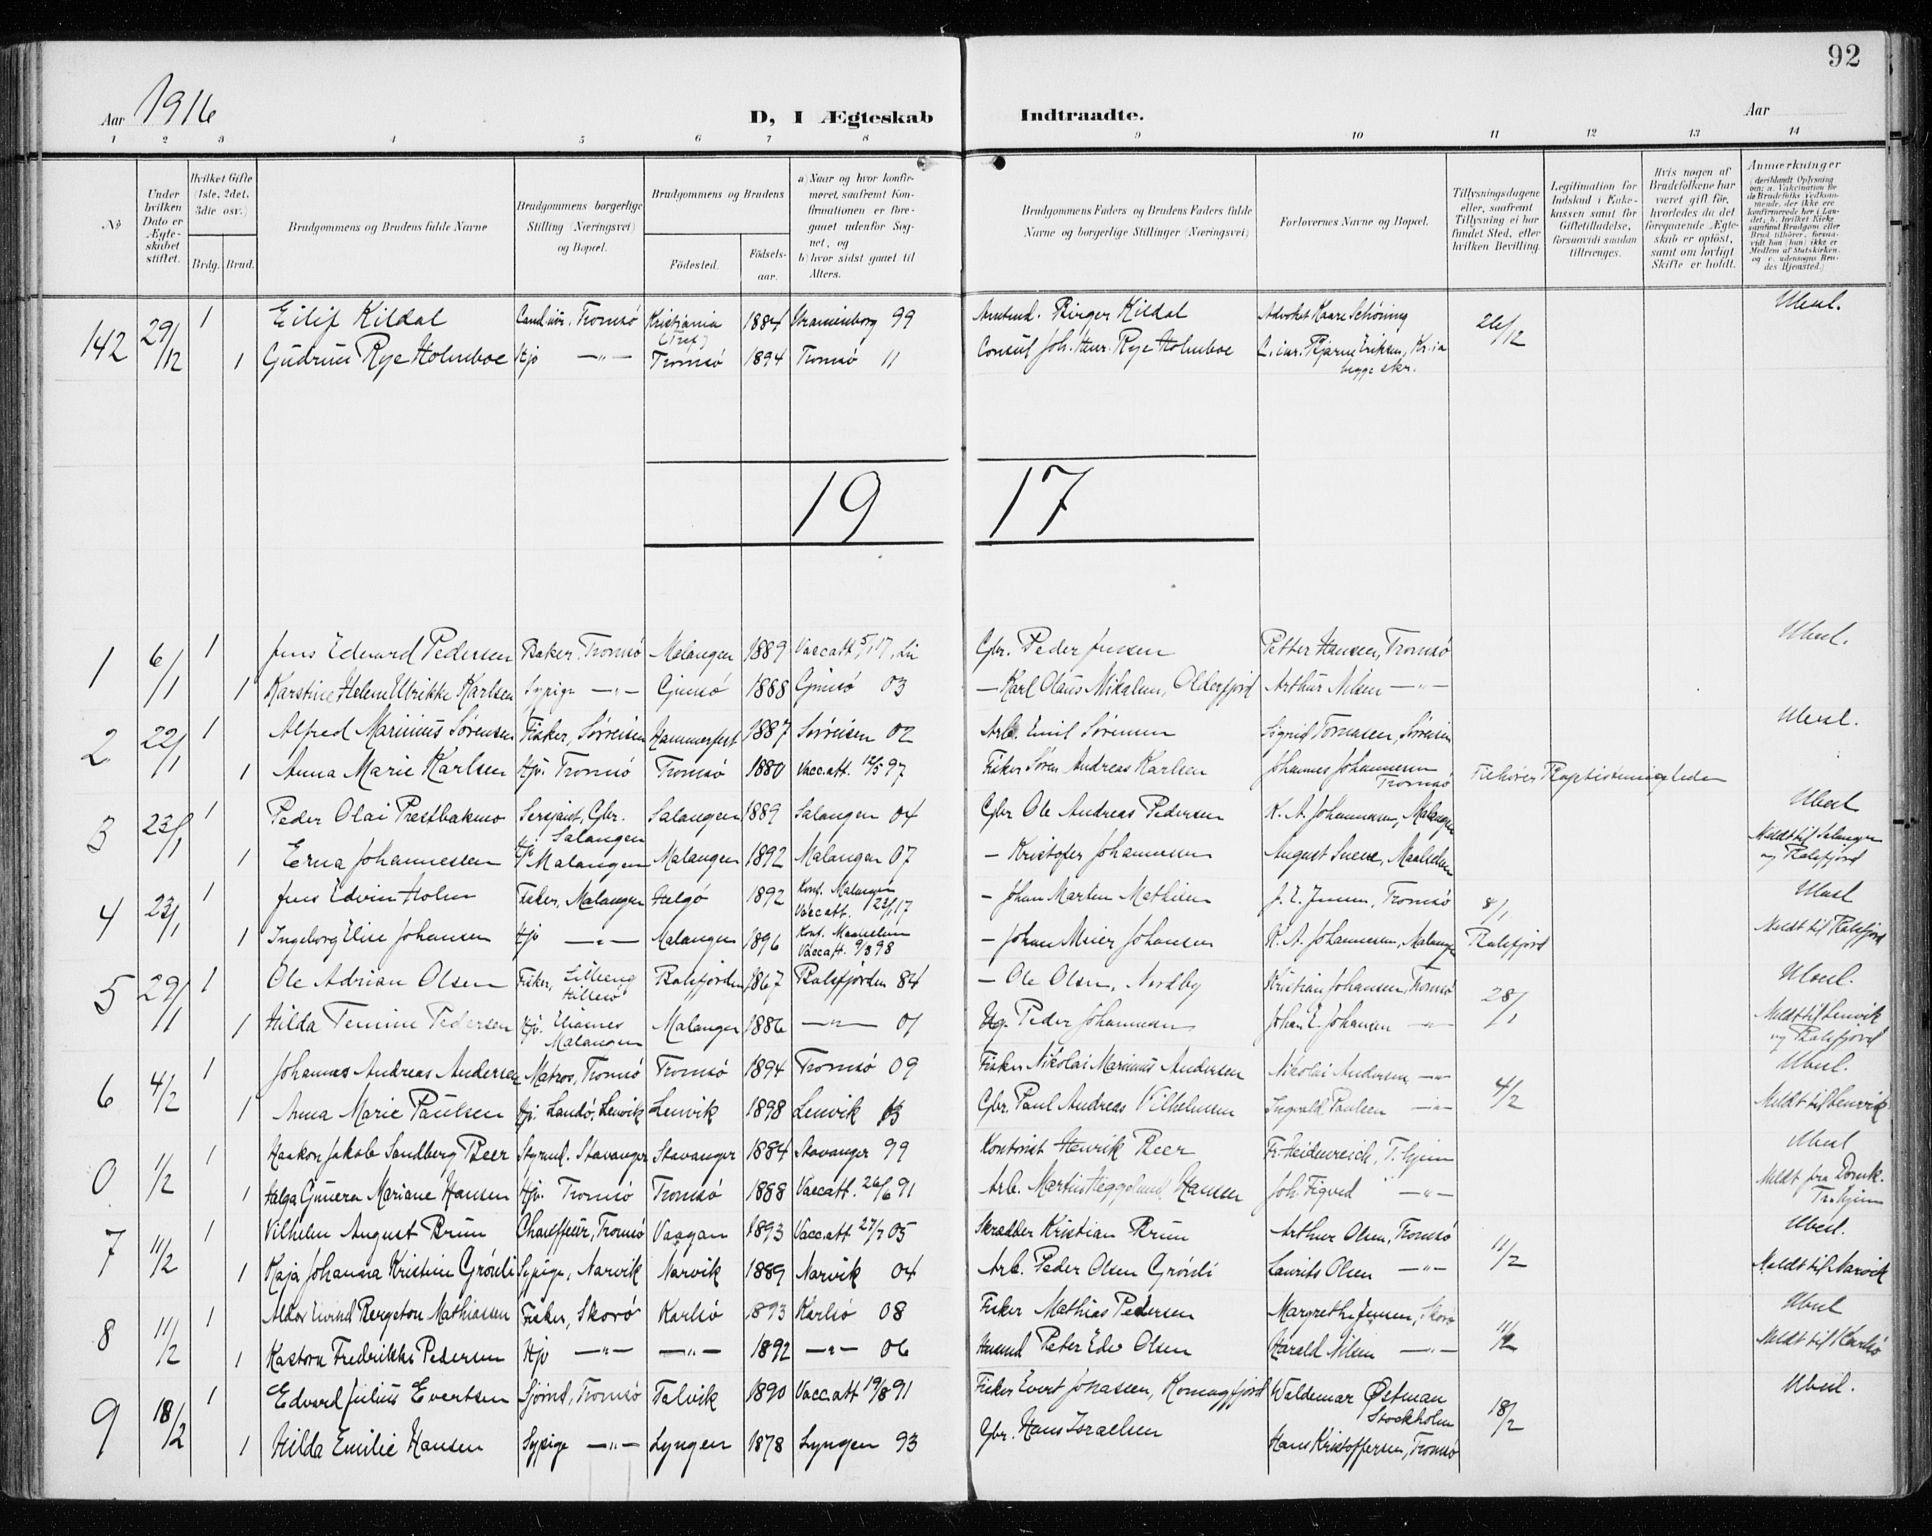 92
Aar 1916
D, I Ægteskab Indtraadte.
Aar
1 2 3 4 5 6 7 8 9 10 11 12 13 14
№
Under hvilken Dato er Ægteskabet stiftet.
Hvilket Gifte (1ste, 2det, 3die osv.)
Brdg. Brud.
Brudgommens og Brudens fulde Navne
Brudgommens borgerlige Stilling (Næringsvei) og Bopæl.
Brudgommens og Brudens
Fødested. Fødselsaar.
a) Naar og hvor konfirmeret, saafremt Konfirmationen er foregaaet udenfor Sognet, og
b) hvor sidst gaaet til Alters.
Brudgommens Faders og Brudens Faders fulde Navne og borgerlige Stillinger (Næringsvei)
Forlovernes Navne og Bopæl.
Tillysningsdagene eller, saafremt Tillysning ei har fundet Sted, efter hvilken Bevilling.
Legitimation for Indskud i Enkekassen samt for Giftetilladelse, forsaavidt saadan tiltrænges.
Hvis nogen af Brudefolkene har været gift før, hvorledes da det foregaaende Ægteskab er opløst, samt om lovligt Skifte er holdt.
Anmærkninger
142 29/12 1 Eilif Kildal Cand. jur. Tromsø Kristiania 1884 Uranienborg 99 Amtmd. Birger Kildal Advokat Kaare Schøning 26/12 Ubesl.
1 Gudrun Rye Holmboe Hjv —"— Tromsø 1894 Tromsø 11 Consul Joh. Henr. Rye Holmboe C. jur. Bjarne Eriksen, Kr.ia
begge skr.
19 17
1 6/1 1 Jens Edvard Pedersen Baker, Tromsø Malangen 1889 Vacc att. 5/1 17, Gbr. Peder Jensen Petter Hansen, Tromsø Ubesl.
1 Karstine Helene Ulrikke Karlsen Sypige —"— Gimsø 1888 Gimsø 03 — Karl Olaus Mikalsen, Olderfjord Arthur Nilsen —"—
2 22/1 1 Alfred Marinius Sørensen Fisker, Sørreisen Hammerfest 1887 Sørreisen 02 Arb. Emil Sørensen Sigrid Tomasen, Sørreisen Ubesl.
1 Anna Marie Karlsen Hjv. Tromsø Tromsø 1880 Vacc. att. 12/5 97 Fisker Søren Andreas Karlsen Johannes Johannesen Tromsø Tilhører Baptistmenigheden
3 23/1 1 Peder Olai Prestbakmo Sersjant, Gbr. Salangen Salangen 1889 Salangen 04 Gbr Ole Andreas Pedersen K. A. Johannesen, Malangen Ubesl
1 Erna Johannessen Hjv Malangen Malangen 1892 Malangen 07 — Kristofer Johannesen August Snese, Maalselven Meldt til Salangen og Balsfjord
4 23/1 1 Jens Edvin Holm Fisker, Malangen Helgø 1892 Konf. Malangen Vacc att. 23/1 17 — Johan Martin Mathisen J. E. Jensen, Tromsø 8/1 Ubesl
1 Ingeborg Elise Johansen Hjv —"— Malangen 1896 Konf. Maalselven Vacc att. 9/3 98 — Johan Meier Johansen K. A. Johannesen, Malangen Balsfjord Meldt til Balsfjord
5 29/1 1 Ole Adrian Olsen Fisker, Hillesø Balsfjorden 1867 Balsfjorden 84 — Ole Olsen, Nordby Kristian Johansen, Tromsø 28/1 Ubesl.
1 Hilda Temine Pedersen Hjv. Malangen Malangen 1886 —"— 01 Peder Johannesen Johan E. Johansen —"— Meldt til Lenvik og Balsfjord
6 4/2 1 Johannes Andreas Andersen Matros, Tromsø Tromsø 1894 Tromsø 09 Fisker Nikolai Marinius Andersen Nikolai Andersen —"— 4/2 Ubesl.
1 Anna Marie Paulsen Hjv. Landø, Lenvik Lenvik 1898 Lenvik 13 Gbr. Paul Andreas Vilhelmsen Ingvald Paulsen —"— Meldt til Lenvik
0 1/2 1 Haakon Jakob Sandberg Beer Styrmd. Stavanger Stavanger 1884 Stavanger 99 Kontorist Henrik Beer Fr. Heidenreich, T.hjem Ubesl
1 Helga Gunera Mariane Hansen Hjv. Tromsø Tromsø 1888 Vacc att. 26/6 91 Arb. Martin Heggelund Hansen Joh. Figved —"— Meldt fra Domk. Tr.hjem
7 11/2 1 Vilhelm August Brun Chauffeur, Tromsø Vaagan 1893 Vacc. att 27/7 05 Skrædder Kristian Brun Arthur Olsen, Tromsø 11/2 Ubesl.
1 Kaja Johanna Kristine Grönli Sypige, Narvik Narvik 1889 Narvik 04 Arb. Peder Olsen Grönli Laurits Olsen —"— Meldt til Narvik
8 11/2 1 Aldor Eivind Bergeton Mathiassen Fisker, Skorø Karlsø 1893 Karlsø 08 Fisker Mathias Pedersen Margrethe Jensen, Skorø 11/2 Ubesl
1 Kastora Fredrikke Pedersen Hjv —"— —"— 1892 —"— 06 Husmd Peter Edv Olsen Harald Nilsen —"— Meldt til Karlsø
9 18/2 1 Edvard Julius Evertsen Sjømd, Tromsø Talvik 1890 Vacc. att 19/8 91 Fisker Evert Jonassen, Komagfjord Waldemar Østman Stockholm 18/2 Ubesl.
1 Hilda Emilie Hansen Sypige —"— Lyngen 1878 Lyngen 93 Gbr. Hans Israelsen Hans Kristoffersen, Tromsø